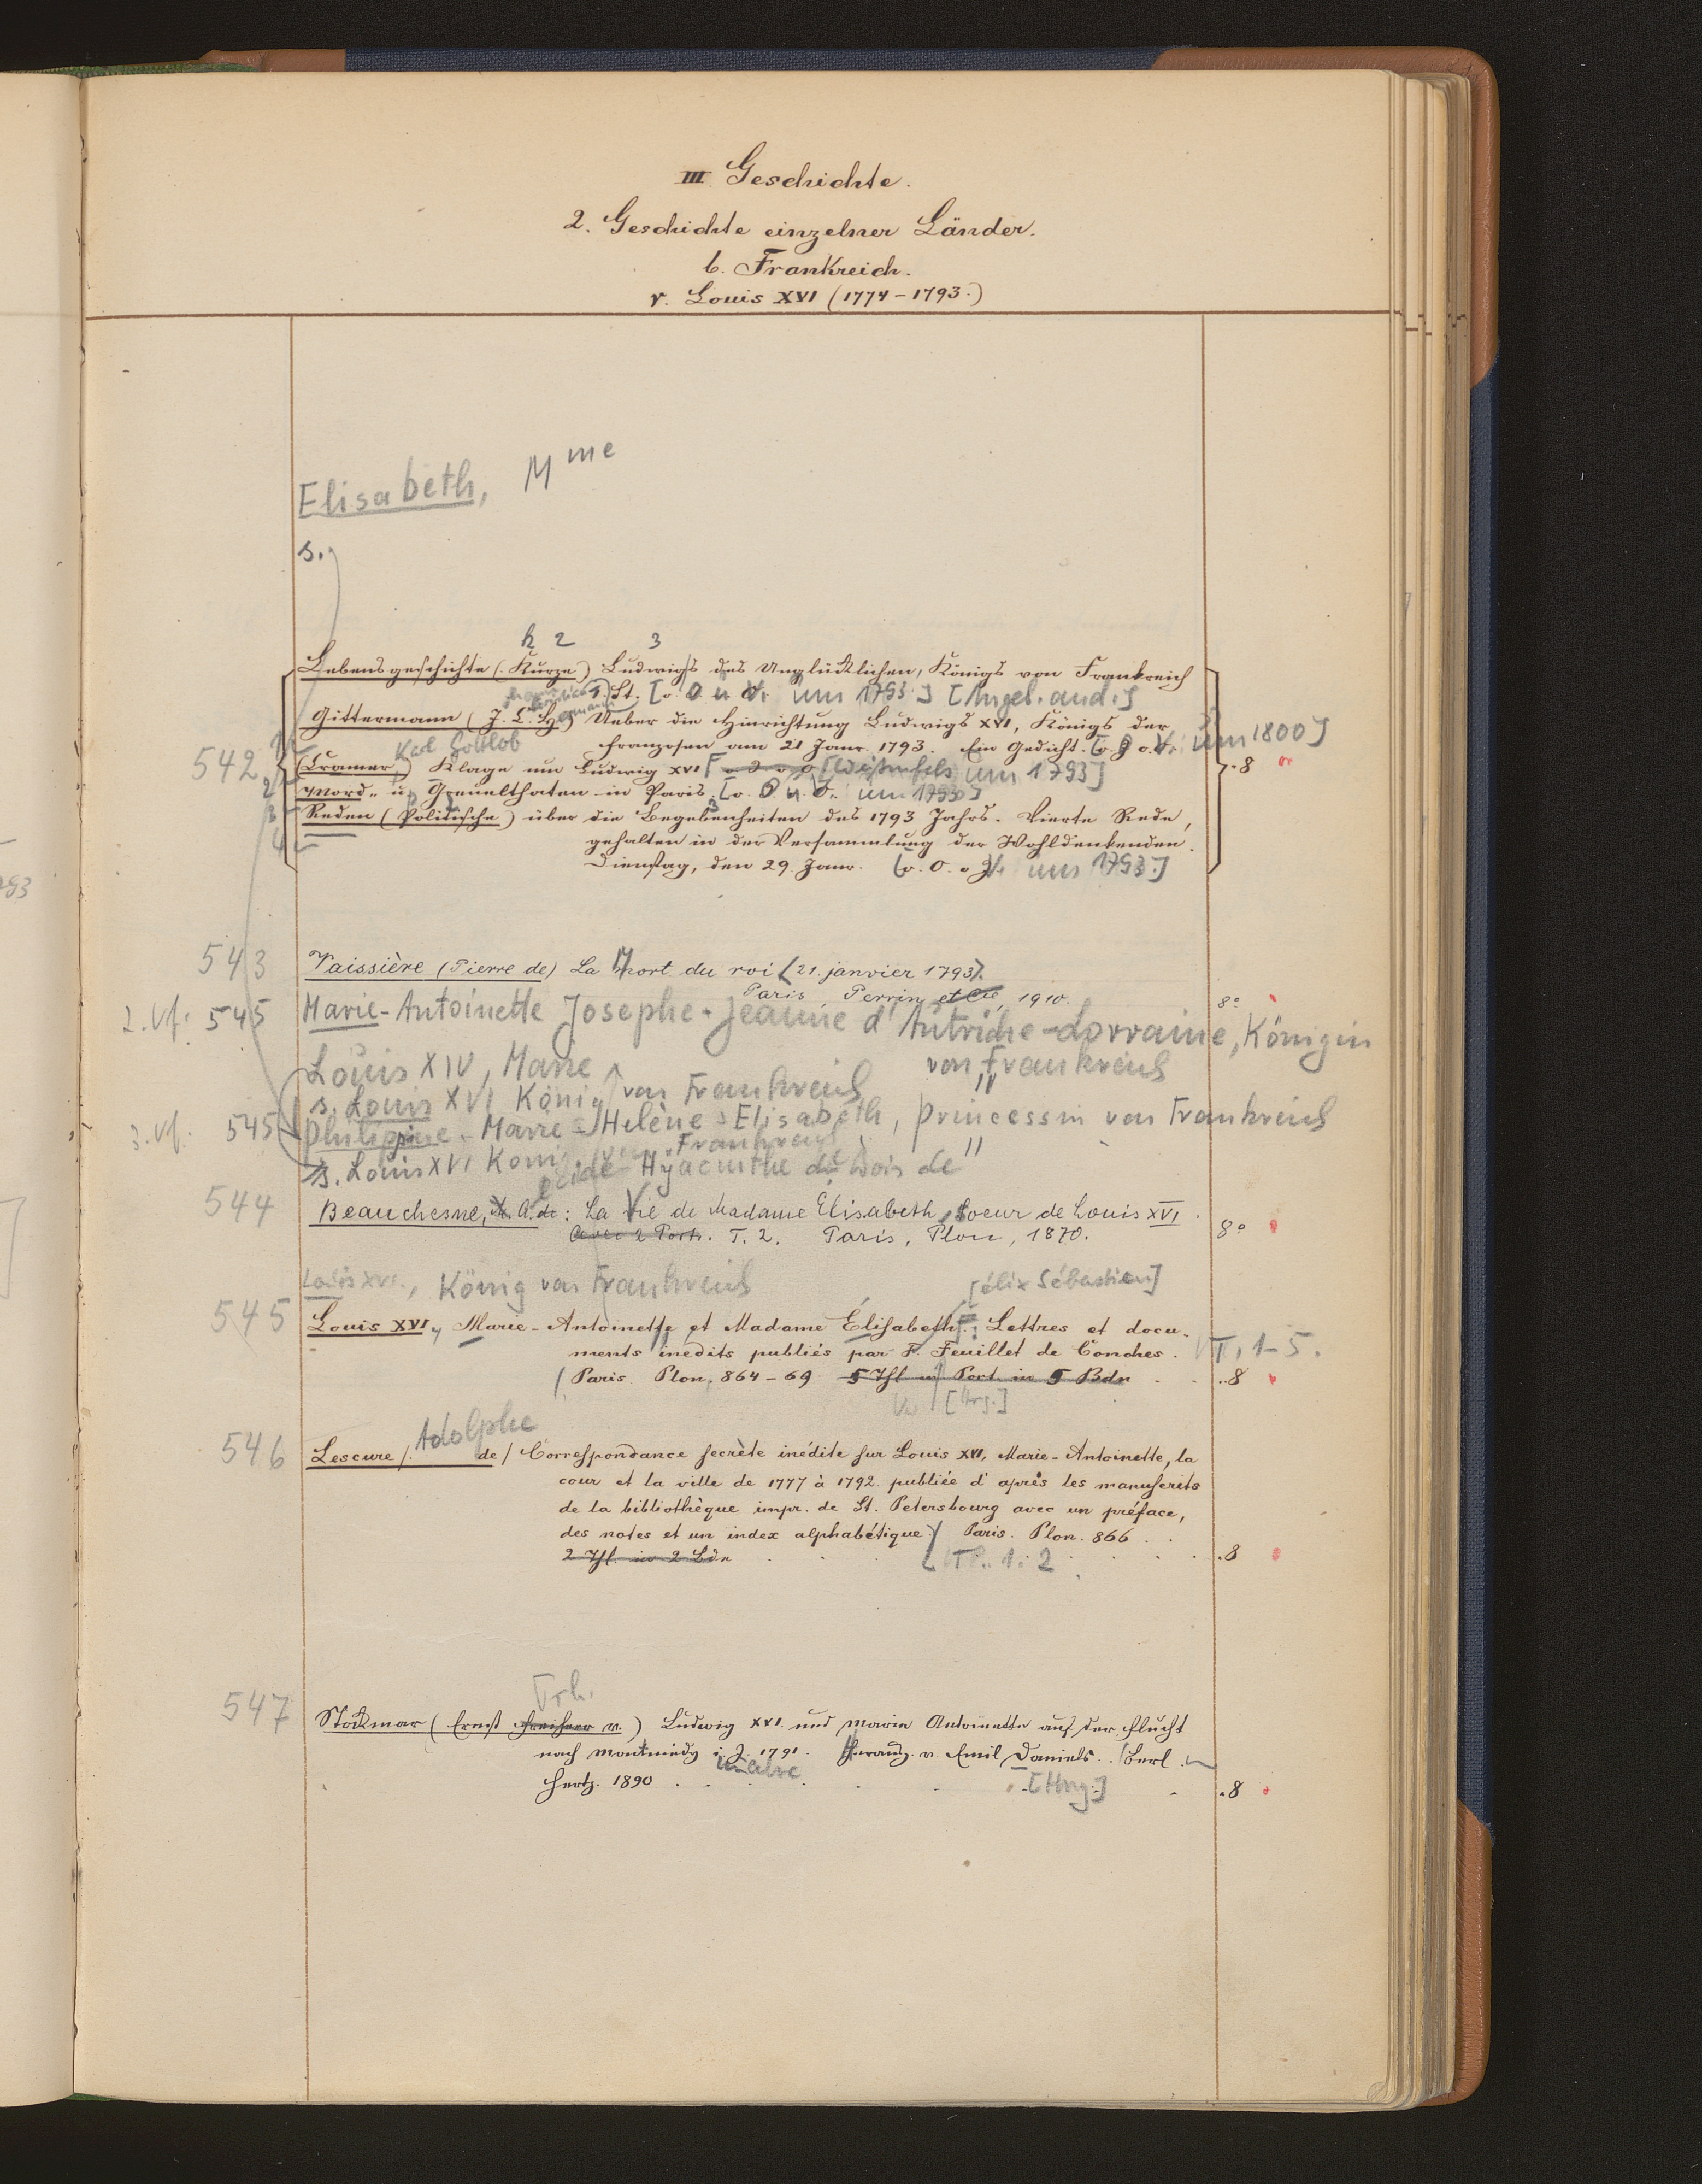 III Geschichte.
2. Geschichte einzelner Länder.
b. Frankreich.
r. Louis XVI (1774-1793.)
Elisabeth, Mme
s.
k 2 3
Lebensgeschichte (Kurze) Ludwigs des Unglücklichen, Königs von Frankreich
St. [o. O. u. V. um 1793.] [Angeb. and.]
Gittermann (J. C. Hermann) Ueber die Hinrichtung Ludwigs XVI, Königs der
Franzosen am 21 Janr. 1793. Ein Gedicht. [o. O. o. V. um 1800]
542 (Cramer, Karl Gottlob) Klage um Ludwig XVI [Weißenfels um 1793] .8
Mord- u. Greuelthaten in Paris. [o. O. u. V. um 1793]
Reden (Politische) über die Begebenheiten des 1793 Jahrs. Vierte Rede,
gehalten in der Versammlung der Wohldenkenden.
Dienstag, den 29. Janr. [o. O. o. V. um 1793.]
543 Vaissière (Pierre de) La Mort du roi (21. janvier 1793).
Paris, Perrin et Cie, 1910. 8°
2. Vf. 545 Marie-Antoinette Josephe-Jeanne d'Autriche-Lorraine, Königin
von Frankreich
Louis XIV, Marie
s. Louis XVI König von Frankreich
3. Vf. 545 Philippine-Marie-Helène-Elisabeth, Princessin von Frankreich
s. Louis XVI König von Frankreich
Hyacinthe du Bois de
544 Beauchesne, A. de: La Vie de Madame Elisabeth, Soeur de Louis XVI.
Avec 2 Portr. T. 2. Paris, Plon, 1870. 8°
Louis XVI., König von Frankreich
[élix Sébastien]
545 Louis XVI, Marie-Antoinette et Madame Élisabeth. Lettres et docu-
ments inedits publiés par F. Feuillet de Conches. T. 1-5.
Paris Plon. 864-69 5 Thl m Port. in 5 Bdn ..8
[Hrg.]
546 Lescure (Adolphe de) Correspondance secrète inédite sur Louis XVI, Marie-Antoinette, la
cour et la ville de 1777 à 1792 publiée d'après les manuscrits
de la bibliothèque impr. de St. Petersbourg avec un préface,
des notes et un index alphabétique. Paris. Plon. 866
2 Thl in 2 Bdn T. 1. 2 .8
Frh.
547 Stockmar (Ernst Freiherr v.) Ludwig XVI und Marie Antoinette auf der Flucht
nach Montmédy i. J. 1791. Herausg. v. Emil Daniels. Berl.
Hertz. 1890 [Hrg.] .8